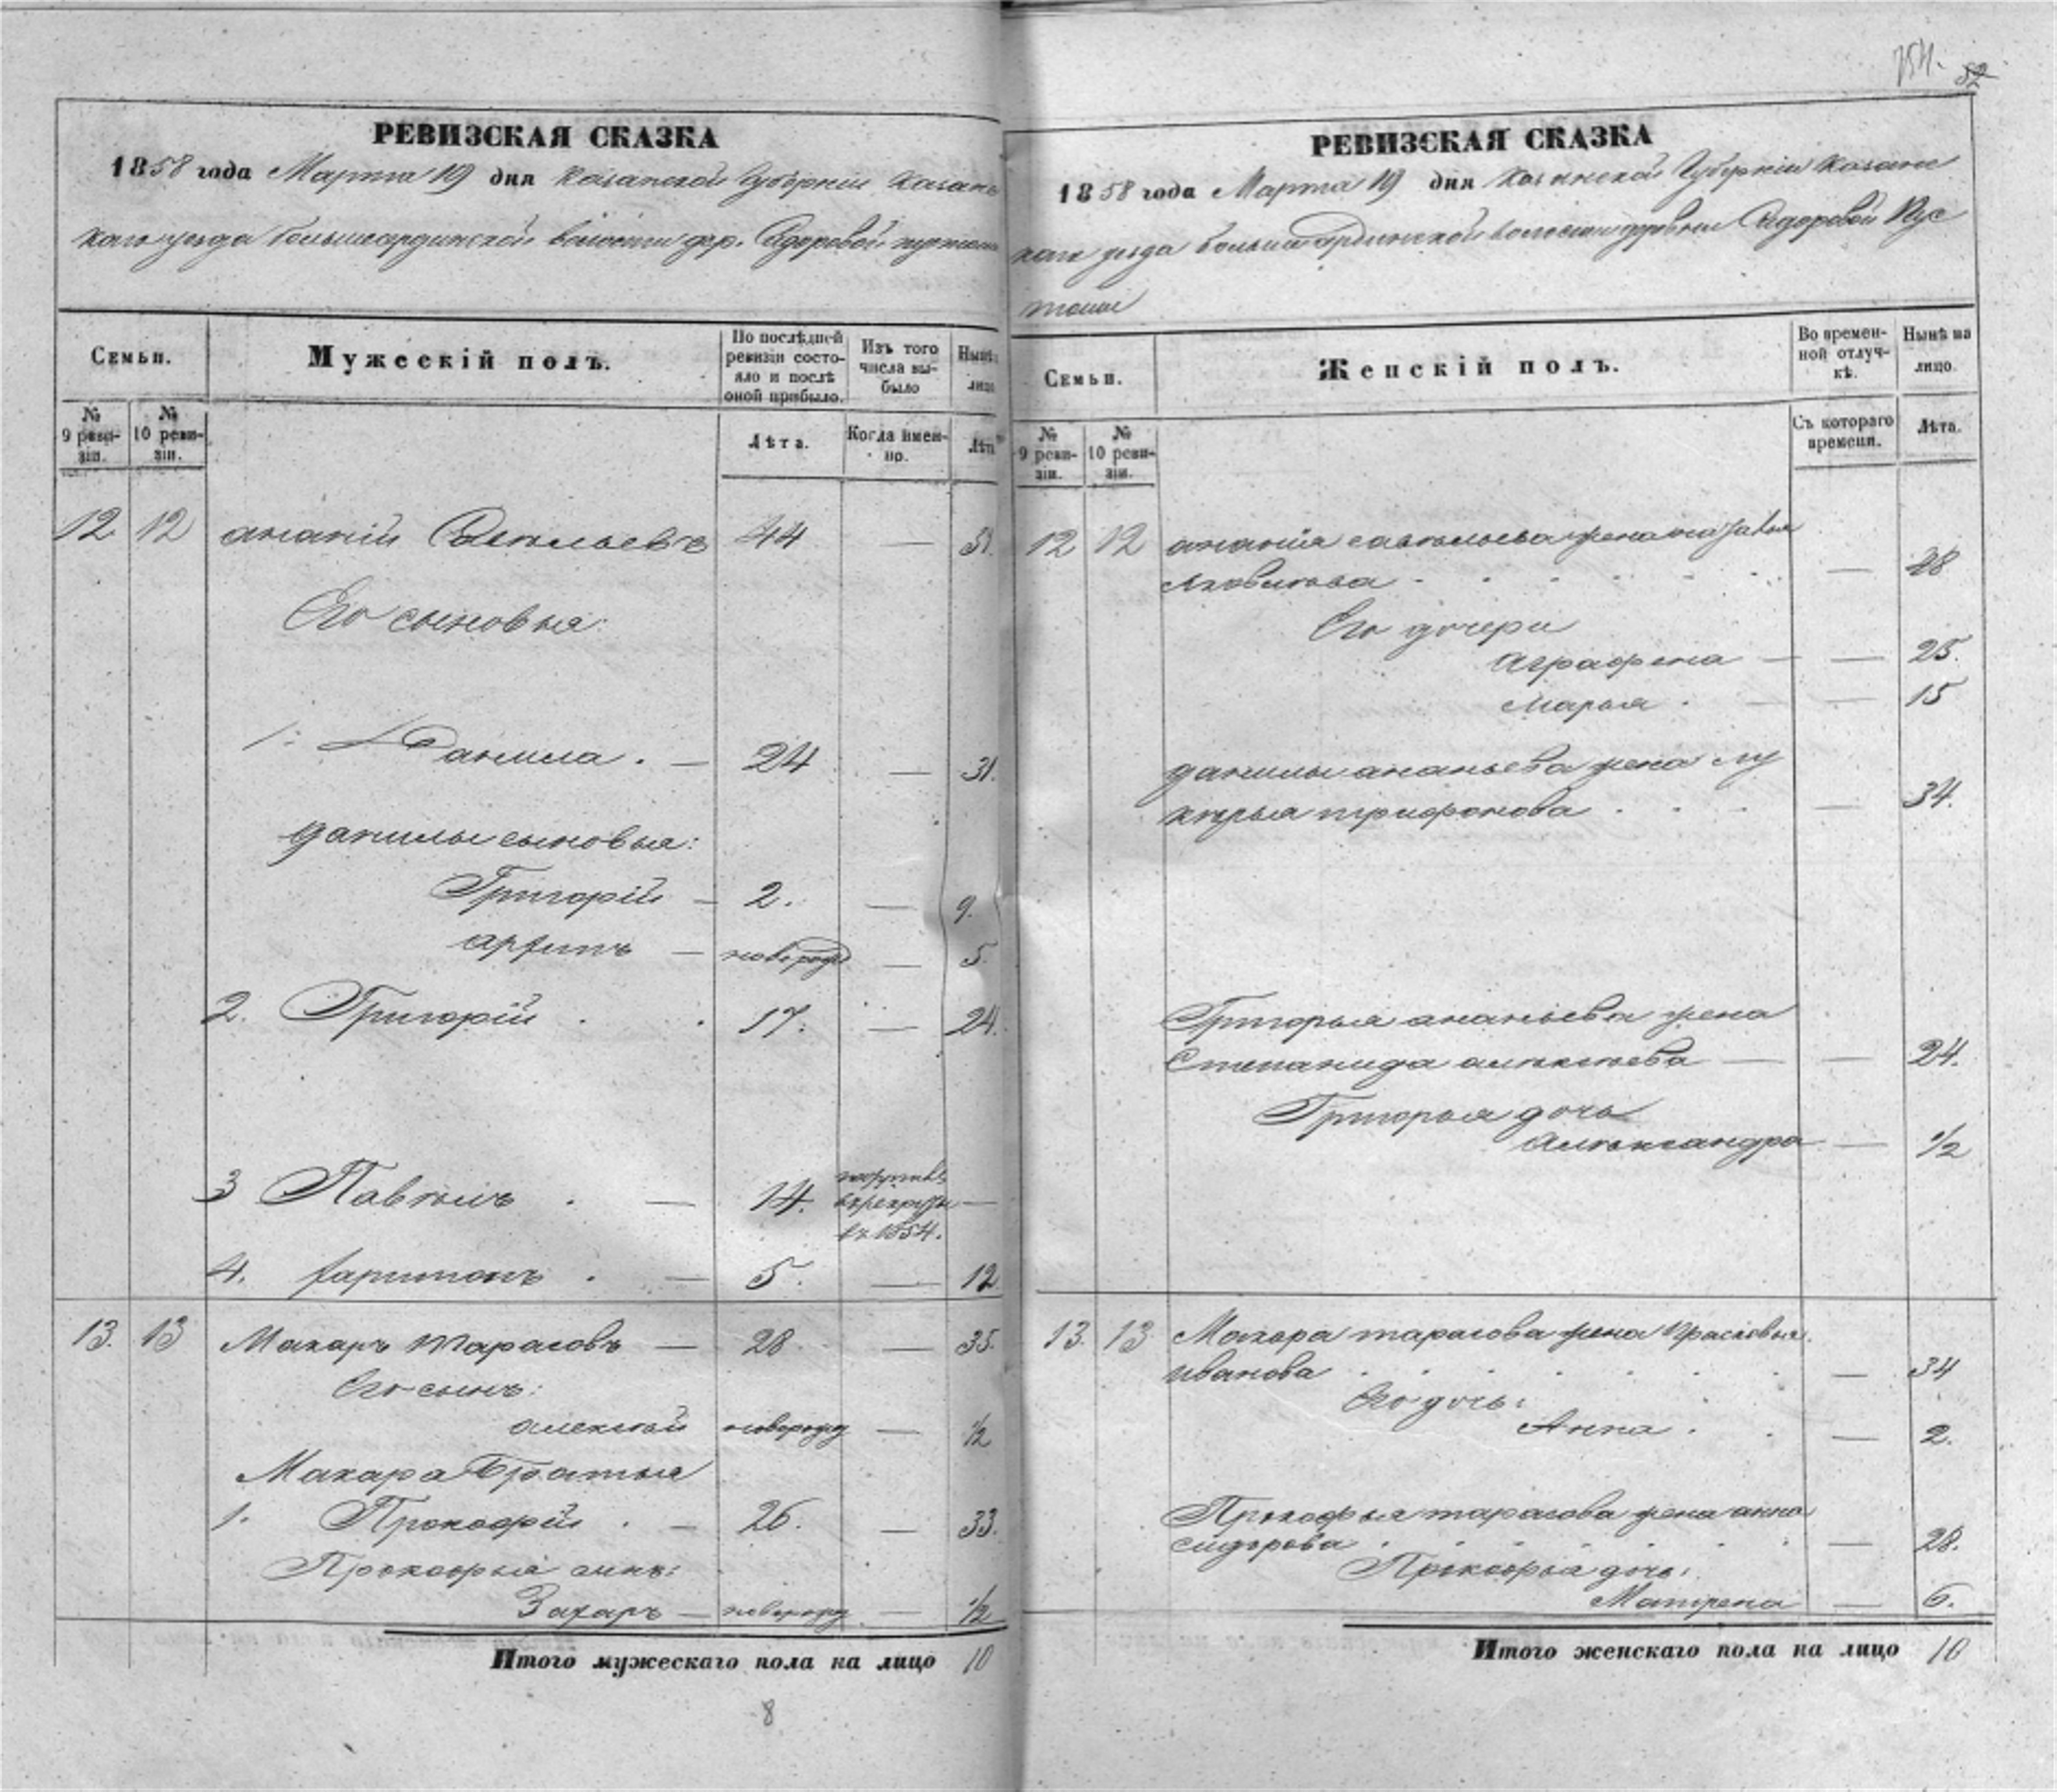 154. 52
РЕВИЗСКАЯ СКАЗКА
1858 года Марта 19 дня Казанской Губерніи Казанс
каго уезда большеардинской волости дер. Сидоровой пустыни
Семьи.
Мужескій полъ.
По послѣдней
ревизіи состо-
яло и послѣ
оной прибыло.
Изъ того
числа вы-
было
Нынѣ
лицо
№
9 реви-
зіи.
№
10 реви-
зіи.
Лѣта.
Когда имен-
но.
Лѣта
12 12 ананій Савельевъ 44 — 51.
Его сыновья:
1. Данила . — 24 — 31.
данилы сыновья:
Григорій — 2. — 9.
архипъ — новорожд — 5.
2. Григорій . . 17. — 24.
3 Павелъ . — 14. —
въ 1854.
4. харитонъ . — 5. — 12
13. 13 Макаръ тарасовъ — 28 — 35.
Его сынъ:
алексей новорожд — ½
Макара Братья
1. Прокофій . — 26. — 33.
Прокофья сынъ:
Захаръ — новорожд — ½
Итого мужескаго пола на лицо 10
8
РЕВИЗСКАЯ СКАЗКА
1858 года Марта 19 дня Казанской Губерніи Казанс
каго уезда большеардинской волости деревни Сидоровой Пус
тыни
Семьи.
Женскій полъ.
Во времен-
ной отлуч-
кѣ.
Нынѣ на
лицо.
№
9 реви-
зіи.
№
10 реви-
зіи.
Съ котораго
времени.
Лѣта.
12 12 анания савельева жена
Яковлева — 48
Его дочери
Аграфена — — 25.
Марья . — — 15
данилы ананьева жена лу
керья трифонова — 34.
Григорья ананьева жена
Степанида алексеева — — 24.
Григорья дочь
Александра — ½
13. 13 Макара тарасова жена Прасковья
иванова — 34
Его дочь:
Анна . — 2.
Прокофья тарасова жена анна
сидорова — 28.
Прокофья дочь:
Матрена — 6.
Итого женскаго пола на лицо 10